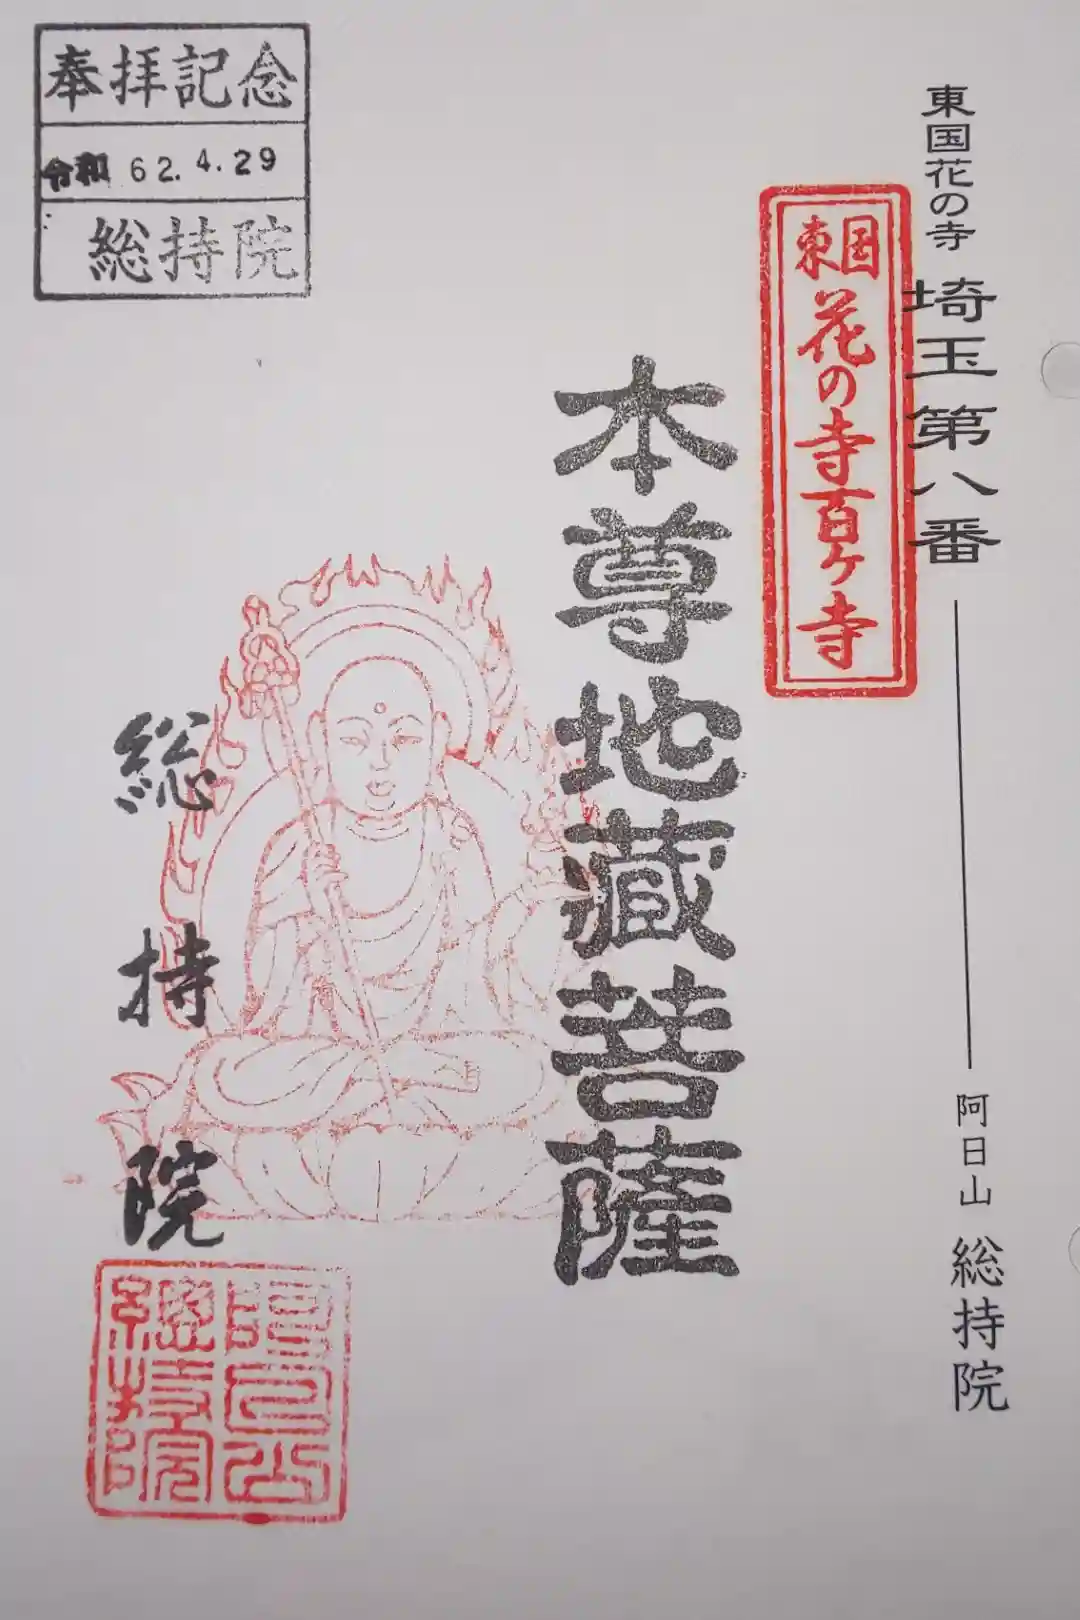 東国花の寺 埼玉第八番 阿日山 総持院
東国
花の寺百ケ寺
本尊地蔵菩薩
総持院
奉拝記念
令和 62.4.29
総持院
阿日山
總持院